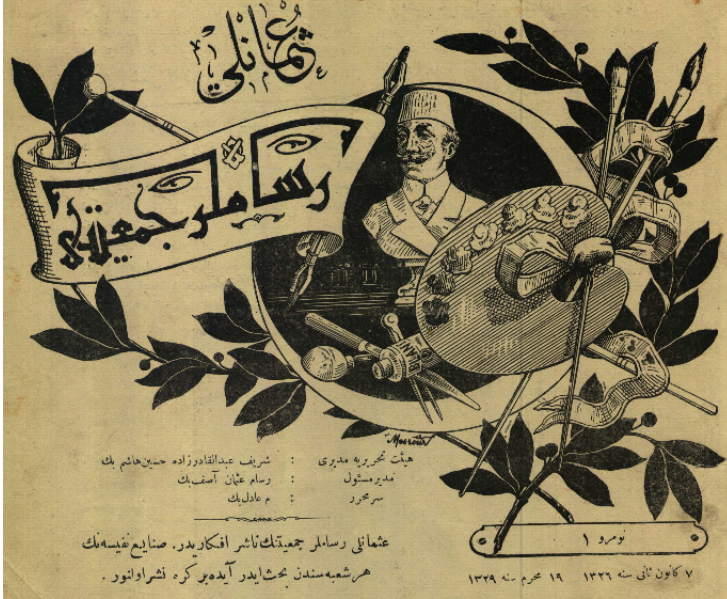 عثمانلی
رساملر جمعیتی
هیئت تحریریه مدیری : شریف عبدالقادرزاده حسین هاشم بك
مدیر مسئول : رسام عثمان آصف بك
سرمحرر : م عادل بك
عثمانلی رساملر جمعیتنك ناشر افكاریدر. صنایع نفیسه نك
هر شعبه سندن بحث ایدر آیده بر كره نشر اولنور .
نومرو ١
٧ كانون ثانی سنه ١٣٢٦ ١٩ محرم سنه ١٣٢٩